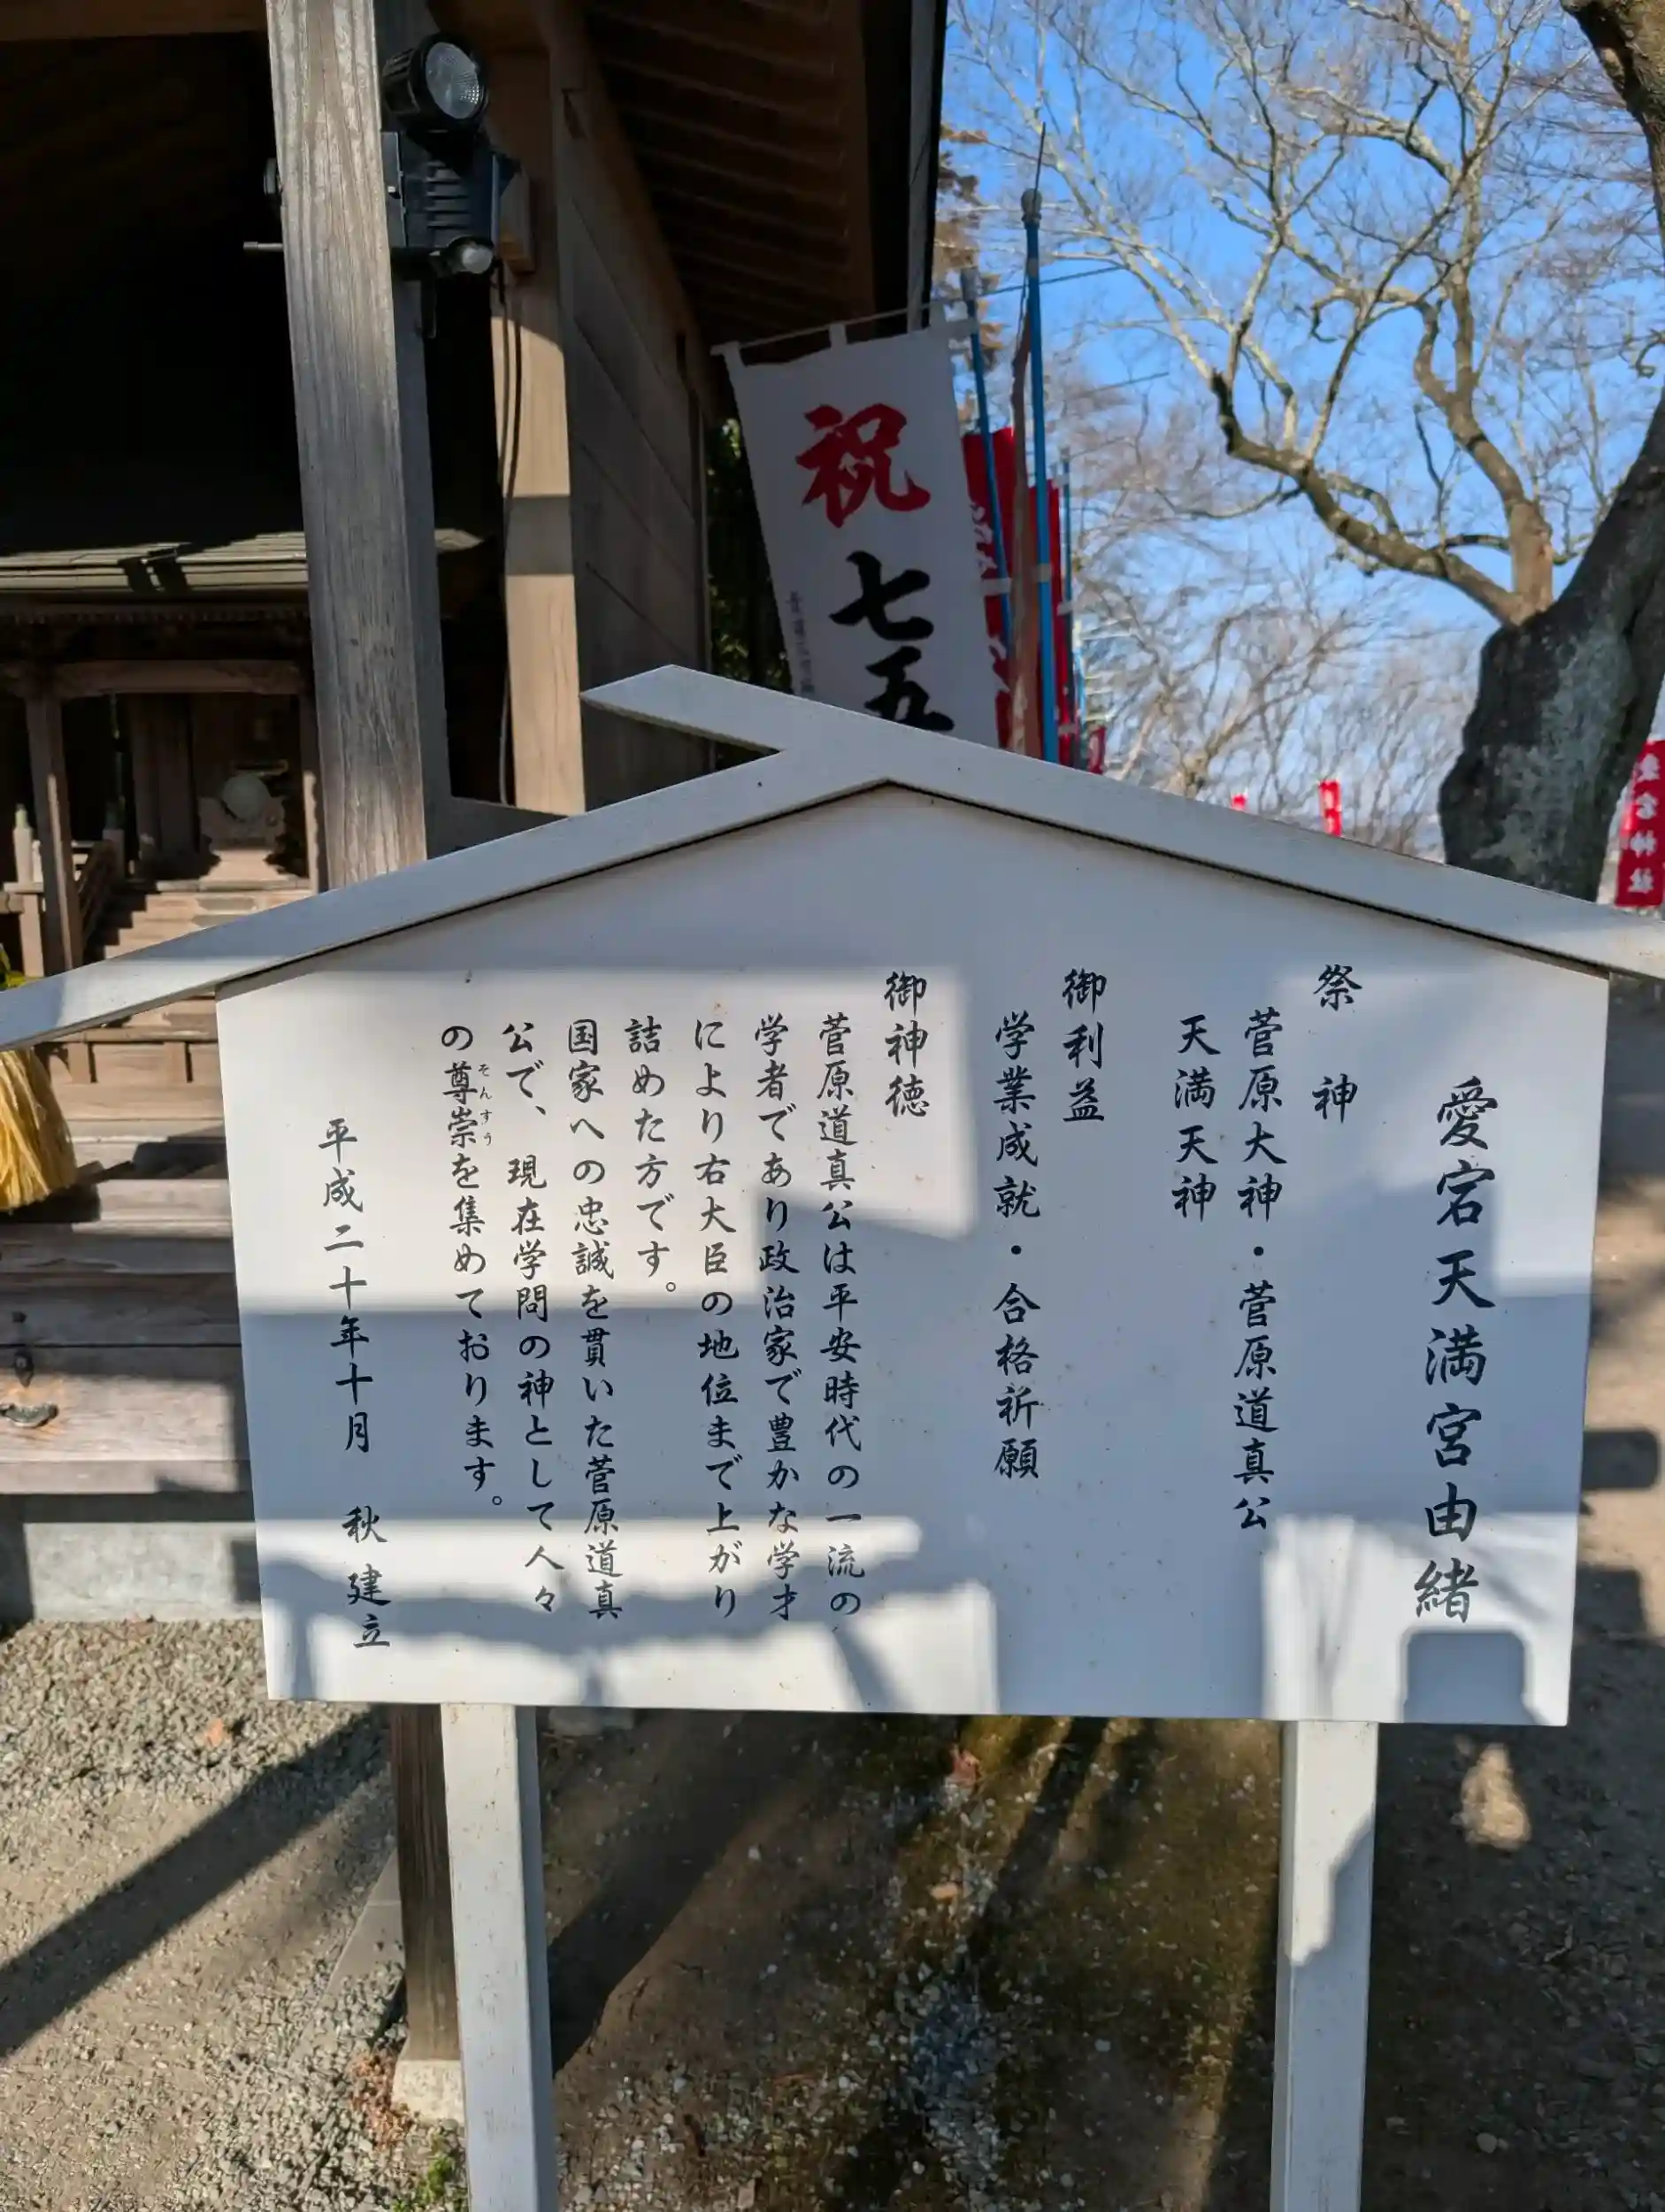 愛宕天満宮由緒
祭神
菅原大神・菅原道真公
天満天神
御利益
学業成就・合格祈願
御神徳
菅原道真公は平安時代の一流の
学者であり政治家で豊かな学才
により右大臣の地位まで上がり
詰めた方です。
国家への忠誠を貫いた菅原道真
公で、現在学問の神として人々
の尊崇を集めております。
そんすう
平成二十年十月 秋建立
祝
七五
愛宕神社